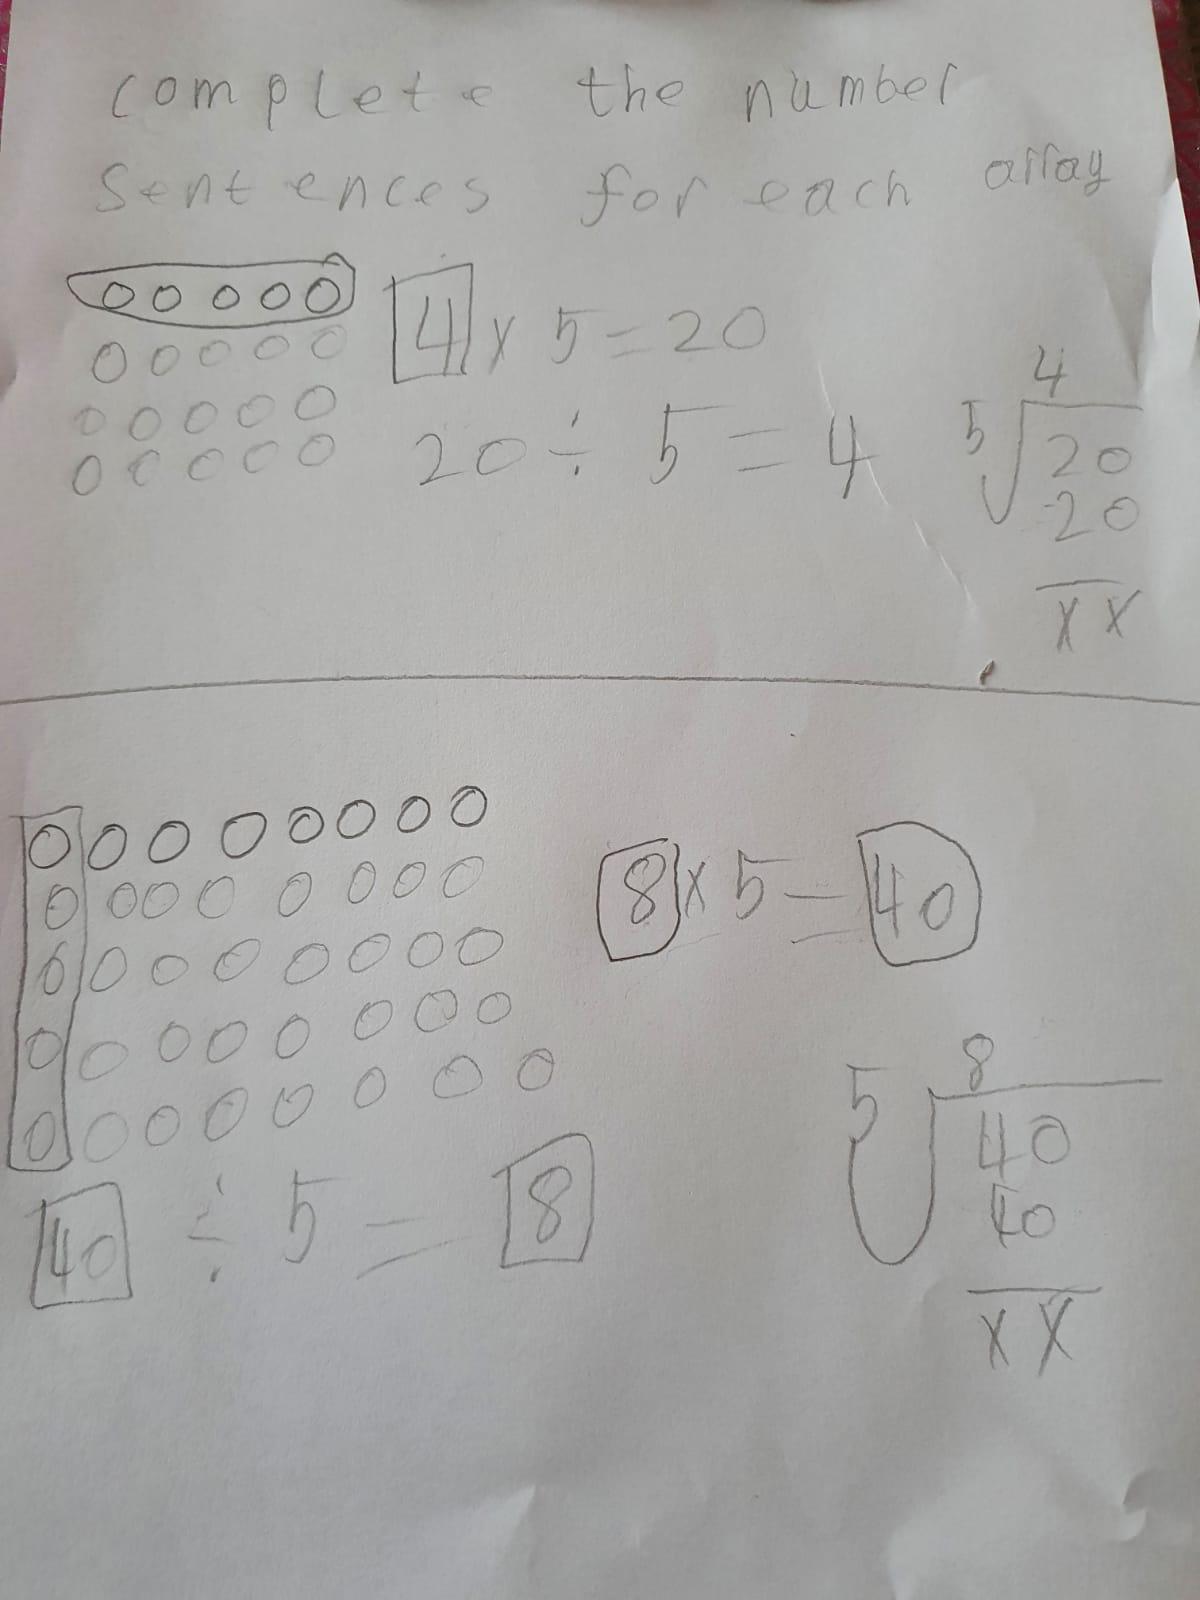 complete the number
sentences for each array
4 x 5 = 20
20 ÷ 5 = 4
4
5 20
20
x x
8 x 5 = 40
40 ÷ 5 = 8
8
5 40
40
x x